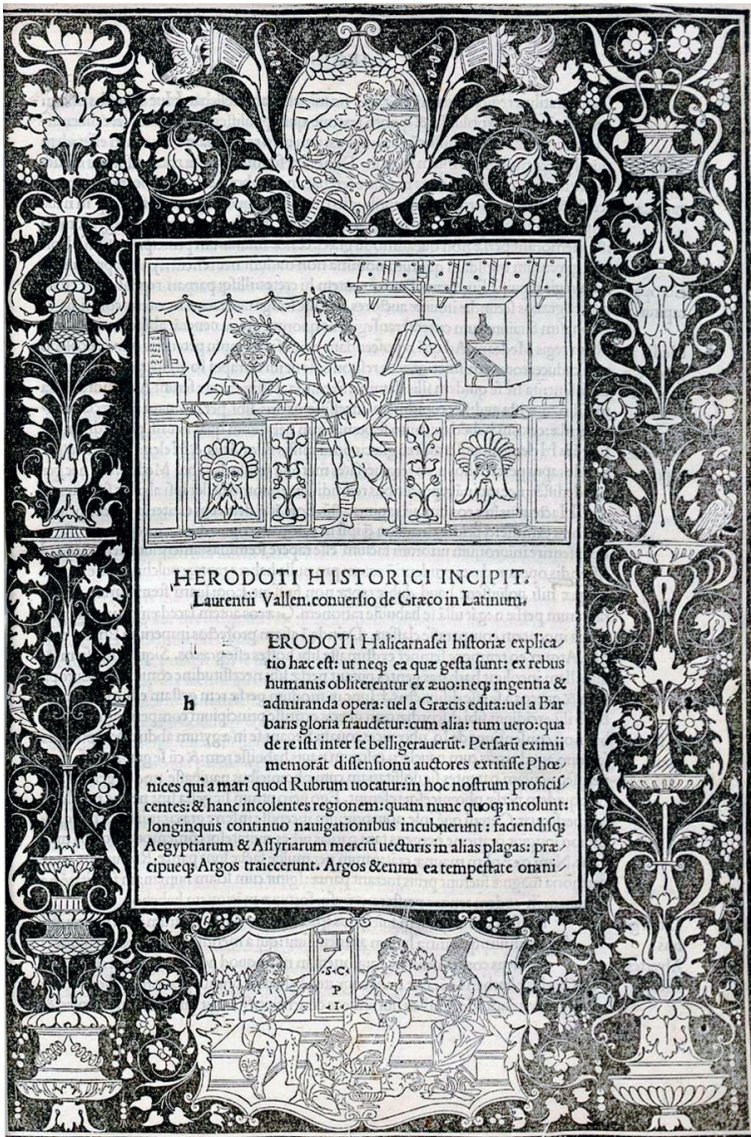 HERODOTI HISTORICI INCIPIT.
Laurentii Vallen. conuersio de Græco in Latinum.
h
ERODOTI Halicarnasei historiæ explica/
tio hæc est: ut neq; ea quæ gesta sunt: ex rebus
humanis obliterentur ex æuo: neq; ingentia &
admiranda opera: uel a Græcis edita: uel a Bar
baris gloria fraudẽtur: cum alia: tum uero: qua
de re isti inter se belligerauerũt. Persarũ eximii
memorãt dissensionũ auctores extitisse Phœ
nices qui a mari quod Rubrum uocatur: in hoc nostrum proficis/
centes: & hanc incolentes regionem: quam nunc quoq; incolunt:
longinquis continuo nauigationibus incubuerunt: faciendisq;
Aegyptiarum & Assyriarum merciũ uecturis in alias plagas: præ/
cipueq; Argos traiecerunt. Argos &enim ea tempestate omni/
.S.C.
P
.I.